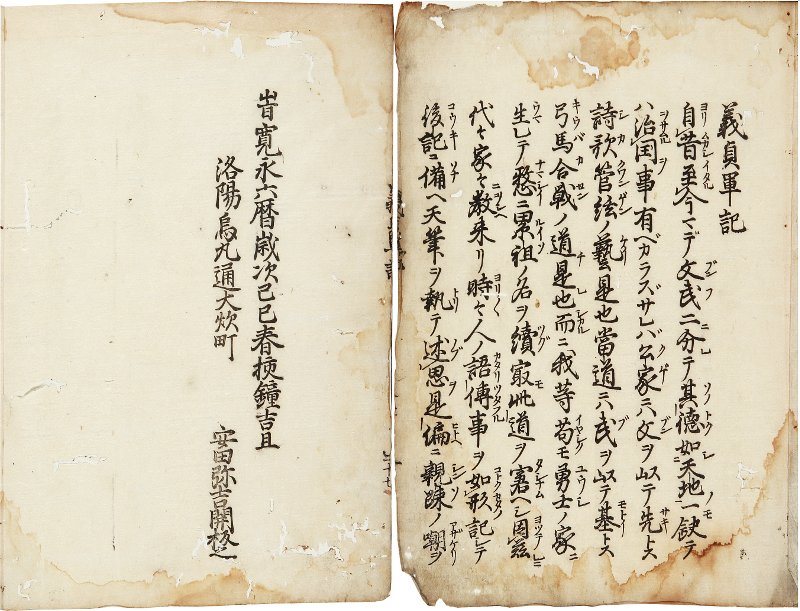 義貞軍記
自昔至今マデ文武二分テ其德如天地一缺テ
ハ治国事有ベカラズサレバ公家ニハ文ヲ以テ先トス
詩歌管絃ノ藝是也當道ニハ武ヲ以テ基トス
弓馬合戦ノ道是也而ニ我等苟モ勇士ノ家ニ
生レテ憖ニ累祖ノ名ヲ續寂此道ヲ嗜ヘシ因茲
代々家々教来リ時々人ノ語傳事ヲ如形記シテ
後記ニ備ヘ天筆ヲ執テ述思是偏ニ親疎ノ嘲ヲ
旹寛永六暦歳次己巳春挾鐘吉旦
洛陽烏丸通大炊町
安田弥吉開板之